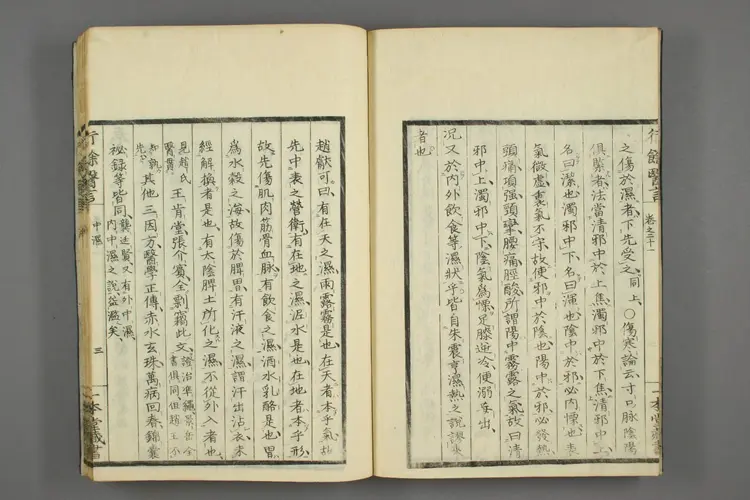 行餘醫言 卷之二十一 一本堂藏書
之傷於濕者、下先受之、同上、○傷寒論云、寸口脉陰陽
俱緊者、法當清邪中於上焦、濁邪中於下焦、清邪中上、
名曰潔也、濁邪中下、名曰渾也、陰中於邪、必內慄也、表
氣微虛、裏氣不守、故使邪中於陰也、陽中於邪、必發熱
頭痛、項強、頸攣、腰痛、脛酸、所謂陽中霧露之氣、故曰清
邪中上、濁邪中下、陰氣爲慄、足膝逆冷、便溺妄出、
況又於內外飲食等濕狀乎、皆自朱震亨濕熱之說
者也
趙獻可曰、有在天之濕、雨露霧是也、在天者、本乎氣、故
先中表之營衛、有在地之濕、泥水是也、在地者、本乎形、
故先傷肌肉筋骨血脉、有飲食之濕、酒水乳酪是也、胃
爲水穀之海、故傷於脾胃、有汗液之濕、謂汗出沾衣、未
經解換者是也、有太陰脾土所化之濕、不從外入者也、
見趙氏醫貫 王肯堂、張介賓、全剽竊此文、證治準繩、景岳全書俱同、但趙王不
知孰先 其他三因方、醫學正傳、赤水玄珠、萬病回春、錦囊
祕錄等皆同、龔廷賢、又有外中濕、內中濕之說、益濫矣、
行餘醫言 中濕 三 一本堂藏書